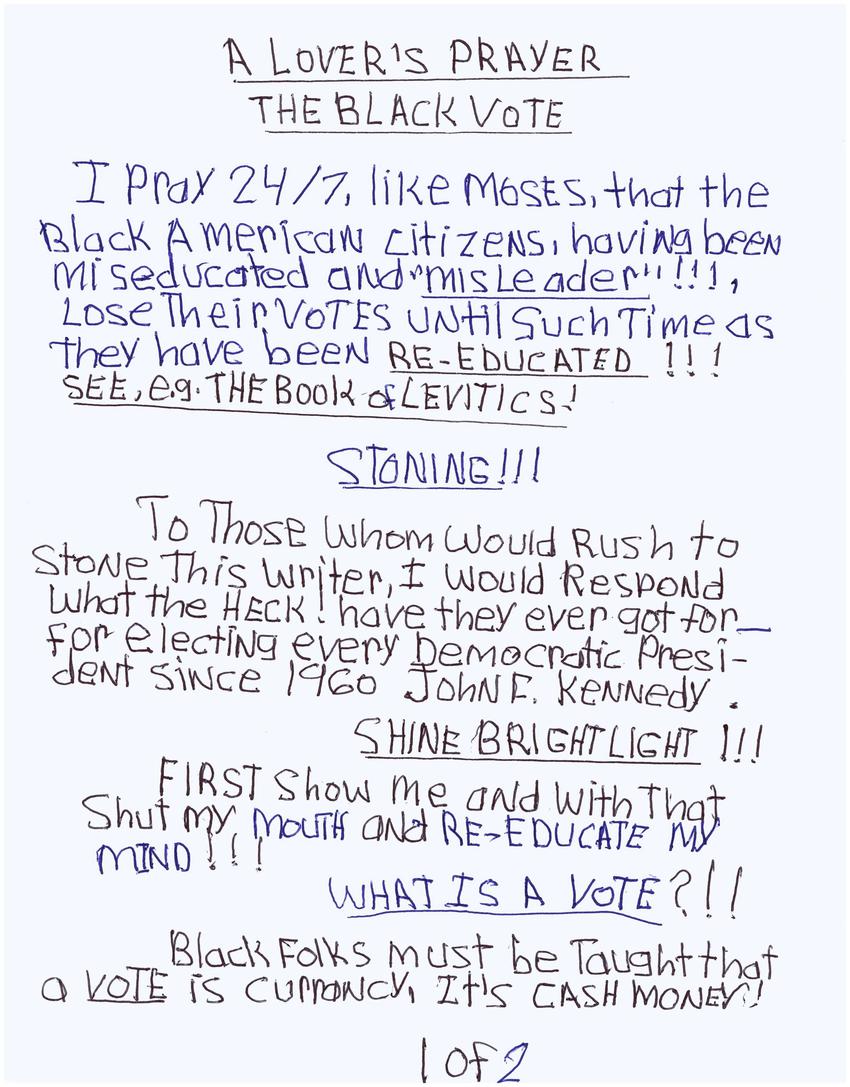 A LOVER'S PRAYER
THE BLACK VOTE
I Pray 24/7, like MOSES, that the
Black American Citizens, having been
miseducated and "misLeader"!!!,
LOSE Their VOTES UNtil Such Time as
they have been RE-EDUCATED !!!
SEE, e.g. THE Book of LEVITICS!
STONING!!!
To Those Whom Would Rush to
Stone This Writer, I Would Respond
What the HECK! have they ever got for_
for electing every Democratic Presi-
dent since 1960 John F. Kennedy.
SHINE BRIGHT LIGHT !!!
FIRST Show me and With That
Shut my MOUTH and RE-EDUCATE MY
MIND !!!
WHAT IS A VOTE?!!
Black Folks must be Taught that
a VOTE is Currancy, It's CASH MONEY!
1 of 2